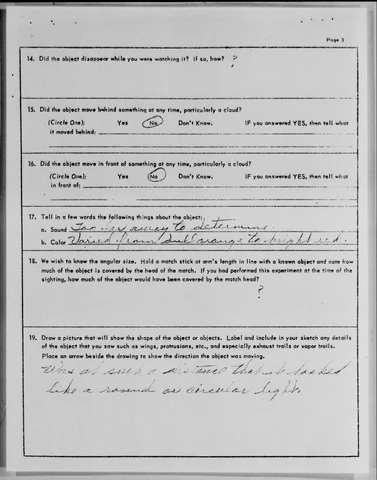 Page 3
14. Did the object disappear while you were watching it? If so, how? ?
15. Did the object move behind something at any time, particularly a cloud?
(Circle One): Yes No Don't Know. IF you answered YES, then tell what
it moved behind:
16. Did the object move in front of something at any time, particularly a cloud?
(Circle One): Yes No Don't Know. IF you answered YES, then tell what
in front of:
17. Tell in a few words the following things about the object:
a. Sound Too far away to determine
b. Color Varied from dull orange to bright red.
18. We wish to know the angular size. Hold a match stick at arm's length in line with a known object and note how
much of the object is covered by the head of the match. If you had performed this experiment at the time of the
sighting, how much of the object would have been covered by the match head?
?
19. Draw a picture that will show the shape of the object or objects. Label and include in your sketch any details
of the object that you saw such as wings, protrusions, etc., and especially exhaust trails or vapor trails.
Place an arrow beside the drawing to show the direction the object was moving.
Was at such a distance that it looked
like a round or circular light.